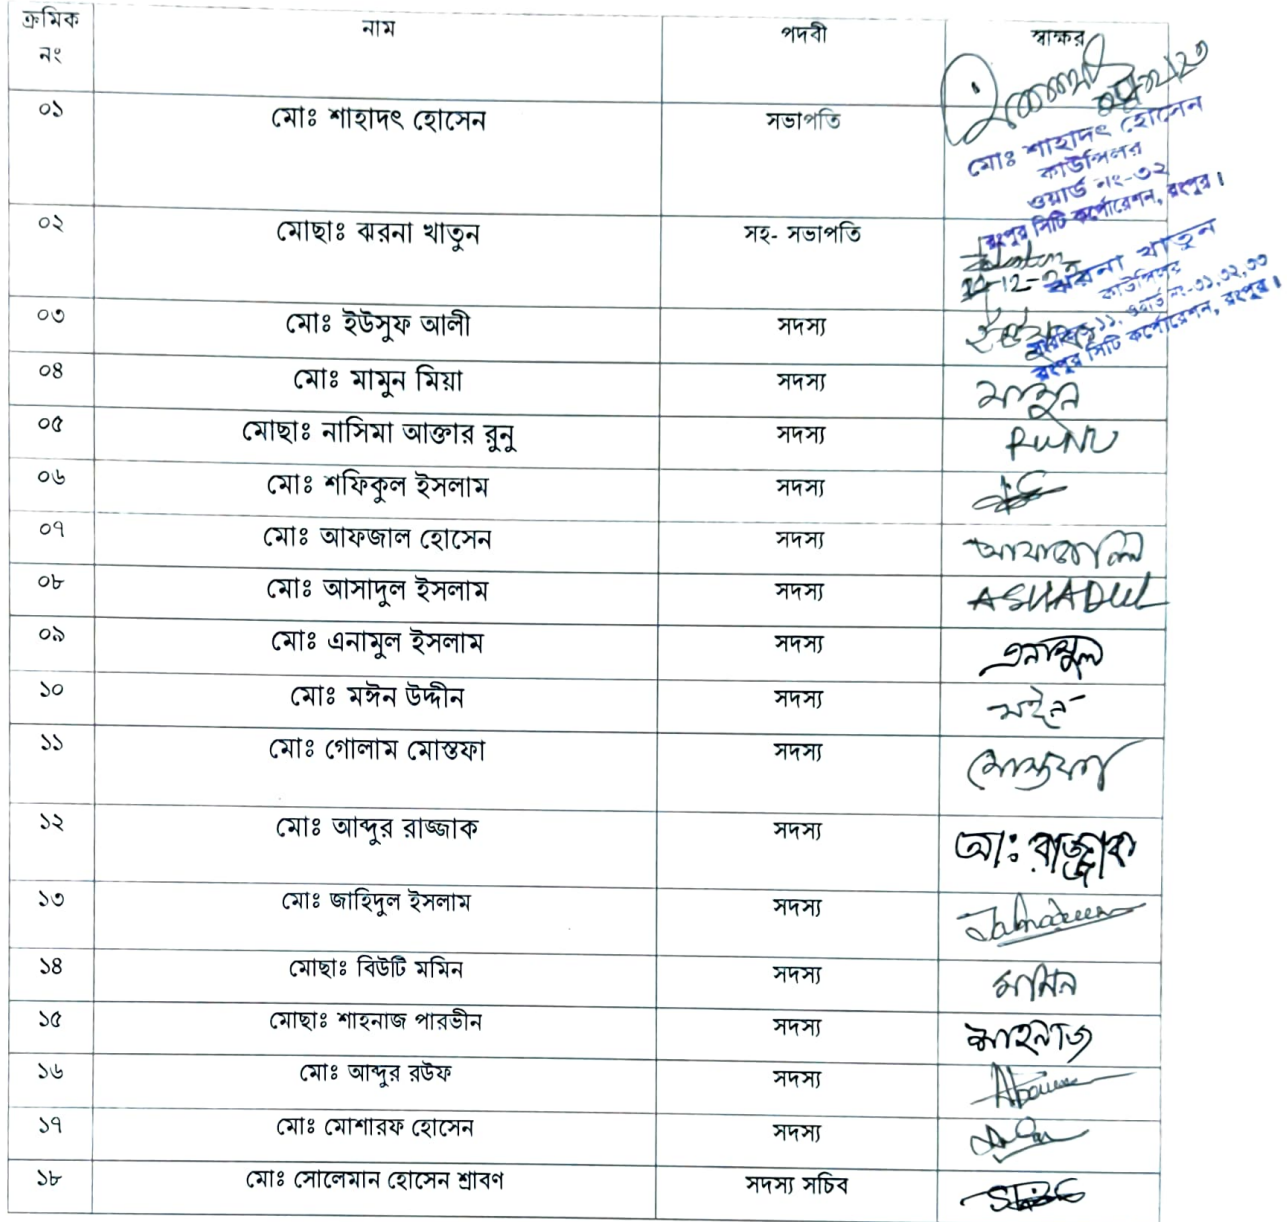 ক্রমিক নং নাম পদবী স্বাক্ষর
০১ মোঃ শাহাদৎ হোসেন সভাপতি
মোঃ শাহাদৎ হোসেন
কাউন্সিলর
ওয়ার্ড নং-৩২
রংপুর সিটি কর্পোরেশন, রংপুর।
০২ মোছাঃ ঝরনা খাতুন সহ- সভাপতি
ঝরনা খাতুন
কাউন্সিলর
১১, ওয়ার্ড নং-৩১,৩২,৩৩
রংপুর সিটি কর্পোরেশন, রংপুর।
০৩ মোঃ ইউসুফ আলী সদস্য
০৪ মোঃ মামুন মিয়া সদস্য মামুন
০৫ মোছাঃ নাসিমা আক্তার রুনু সদস্য RUNU
০৬ মোঃ শফিকুল ইসলাম সদস্য
০৭ মোঃ আফজাল হোসেন সদস্য
০৮ মোঃ আসাদুল ইসলাম সদস্য ASHADUL
০৯ মোঃ এনামুল ইসলাম সদস্য এনামুল
১০ মোঃ মঈন উদ্দীন সদস্য মইন
১১ মোঃ গোলাম মোস্তফা সদস্য মোস্তফা
১২ মোঃ আব্দুর রাজ্জাক সদস্য আঃ রাজ্জাক
১৩ মোঃ জাহিদুল ইসলাম সদস্য
১৪ মোছাঃ বিউটি মমিন সদস্য মমিন
১৫ মোছাঃ শাহনাজ পারভীন সদস্য শাহনাজ
১৬ মোঃ আব্দুর রউফ সদস্য
১৭ মোঃ মোশারফ হোসেন সদস্য
১৮ মোঃ সোলেমান হোসেন শ্রাবণ সদস্য সচিব